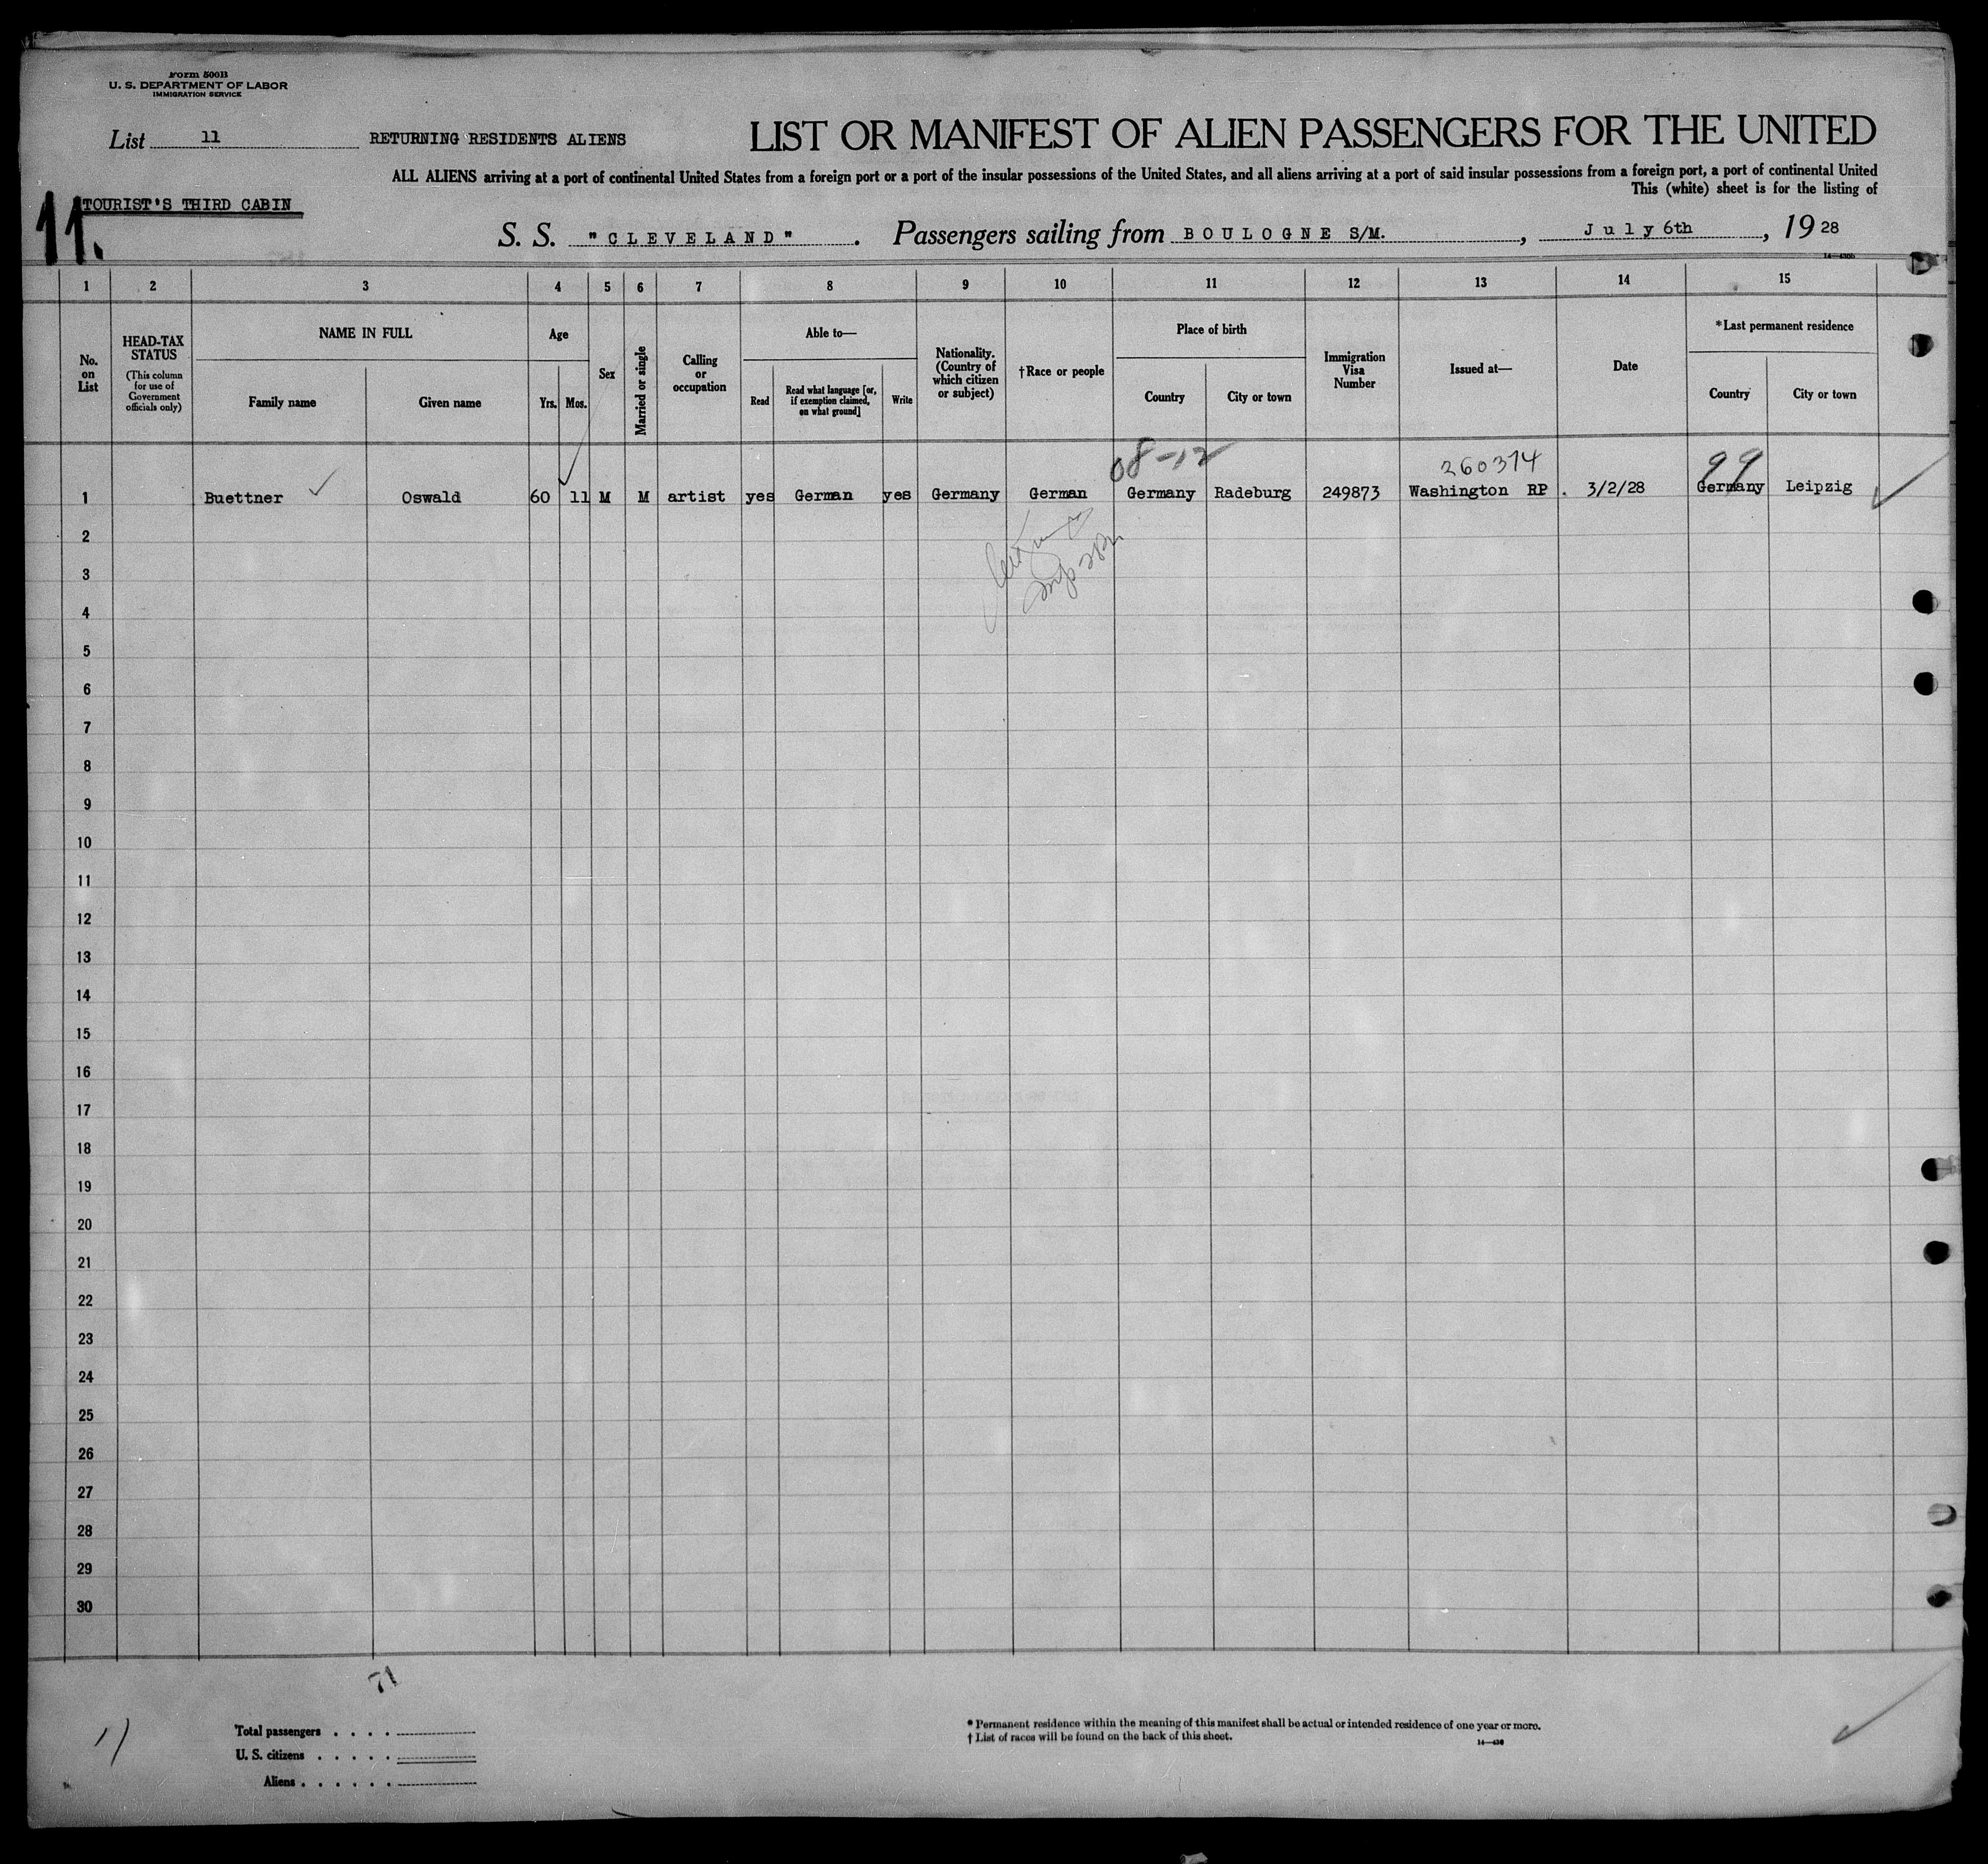 Form 500B
U. S. DEPARTMENT OF LABOR
IMMIGRATION SERVICE
List 11
RETURNING RESIDENTS ALIENS
LIST OR MANIFEST OF ALIEN PASSENGERS FOR THE UNITED
ALL ALIENS arriving at a port of continental United States from a foreign port or a port of the insular possessions of the United States, and all aliens arriving at a port of said insular possessions from a foreign port, a port of continental United
This (white) sheet is for the listing of
TOURIST'S THIRD CABIN
11.
S. S. "CLEVELAND". Passengers sailing from BOULOGNE S/M., July 6th, 1928
14—430b
1 2 3 4 5 6 7 8 9 10 11 12 13 14 15
No. on List
HEAD-TAX STATUS
(This column for use of Government officials only)
NAME IN FULL
Family name
Given name
Age
Yrs.
Mos.
Sex
Married or single
Calling or occupation
Able to—
Read
Read what language [or, if exemption claimed, on what ground]
Write
Nationality. (Country of which citizen or subject)
†Race or people
Place of birth
Country
City or town
Immigration Visa Number
Issued at—
Date
*Last permanent residence
Country
City or town
08-12 260374 99
1 Buettner Oswald 60 11 M M artist yes German yes Germany German Germany Radeburg 249873 Washington RP. 3/2/28 Germany Leipzig
2
3
4
5
6
7
8
9
10
11
12
13
14
15
16
17
18
19
20
21
22
23
24
25
26
27
28
29
30
71
11
Total passengers . . . .
U. S. citizens . . . . .
Aliens . . . . . .
* Permanent residence within the meaning of this manifest shall be actual or intended residence of one year or more.
† List of races will be found on the back of this sheet.
14—430